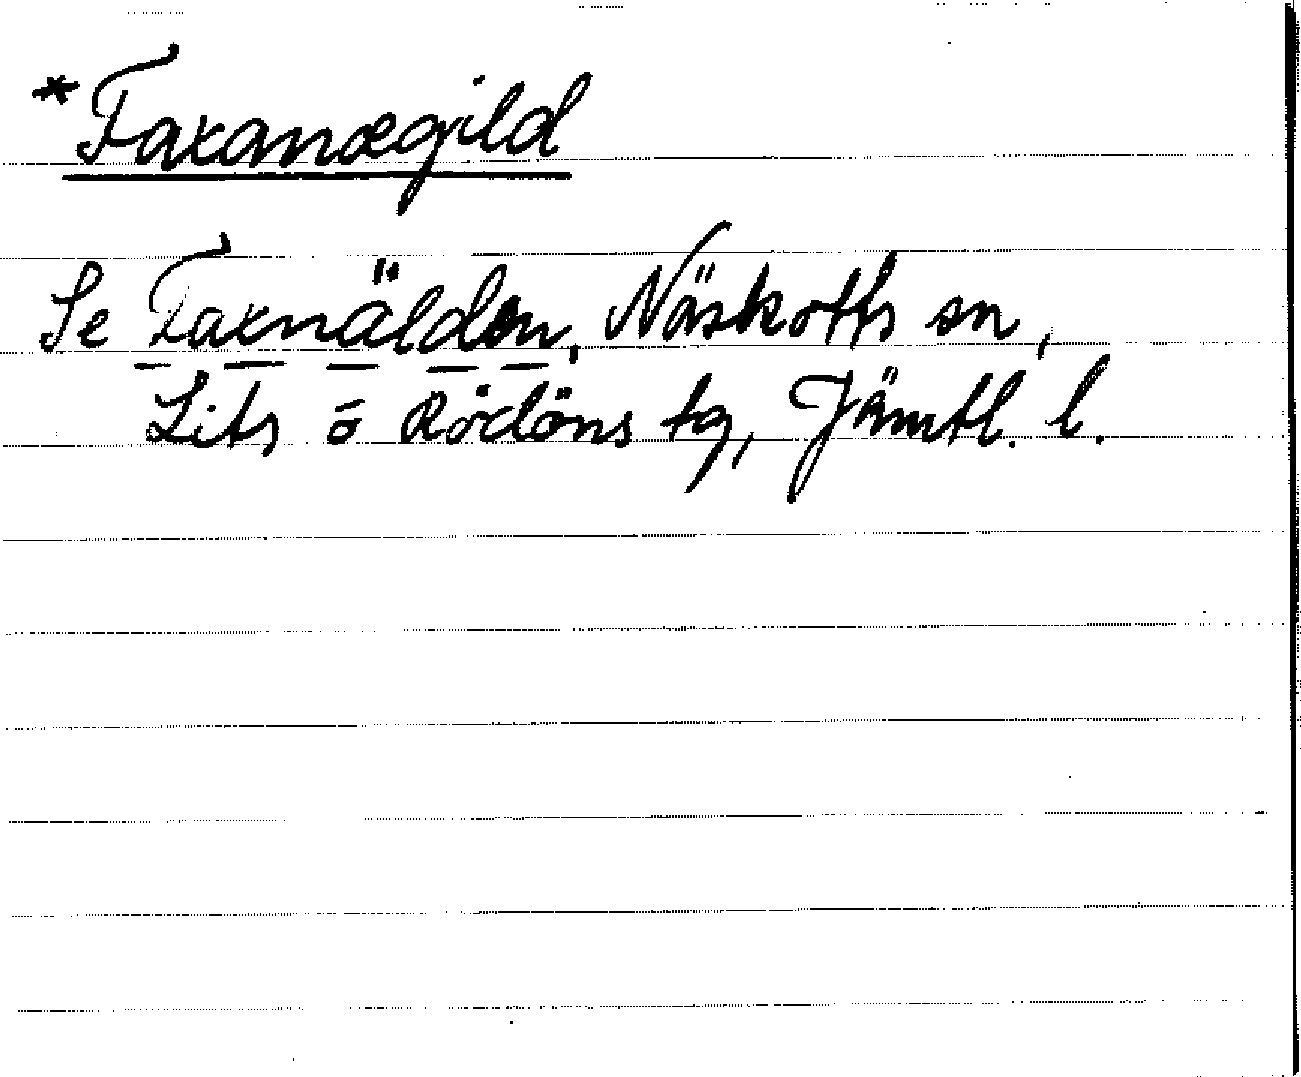 *Faxanægild
Se Faxnälden, Näskotts sn,
Lits o Rödöns tg, Jämtl. l.